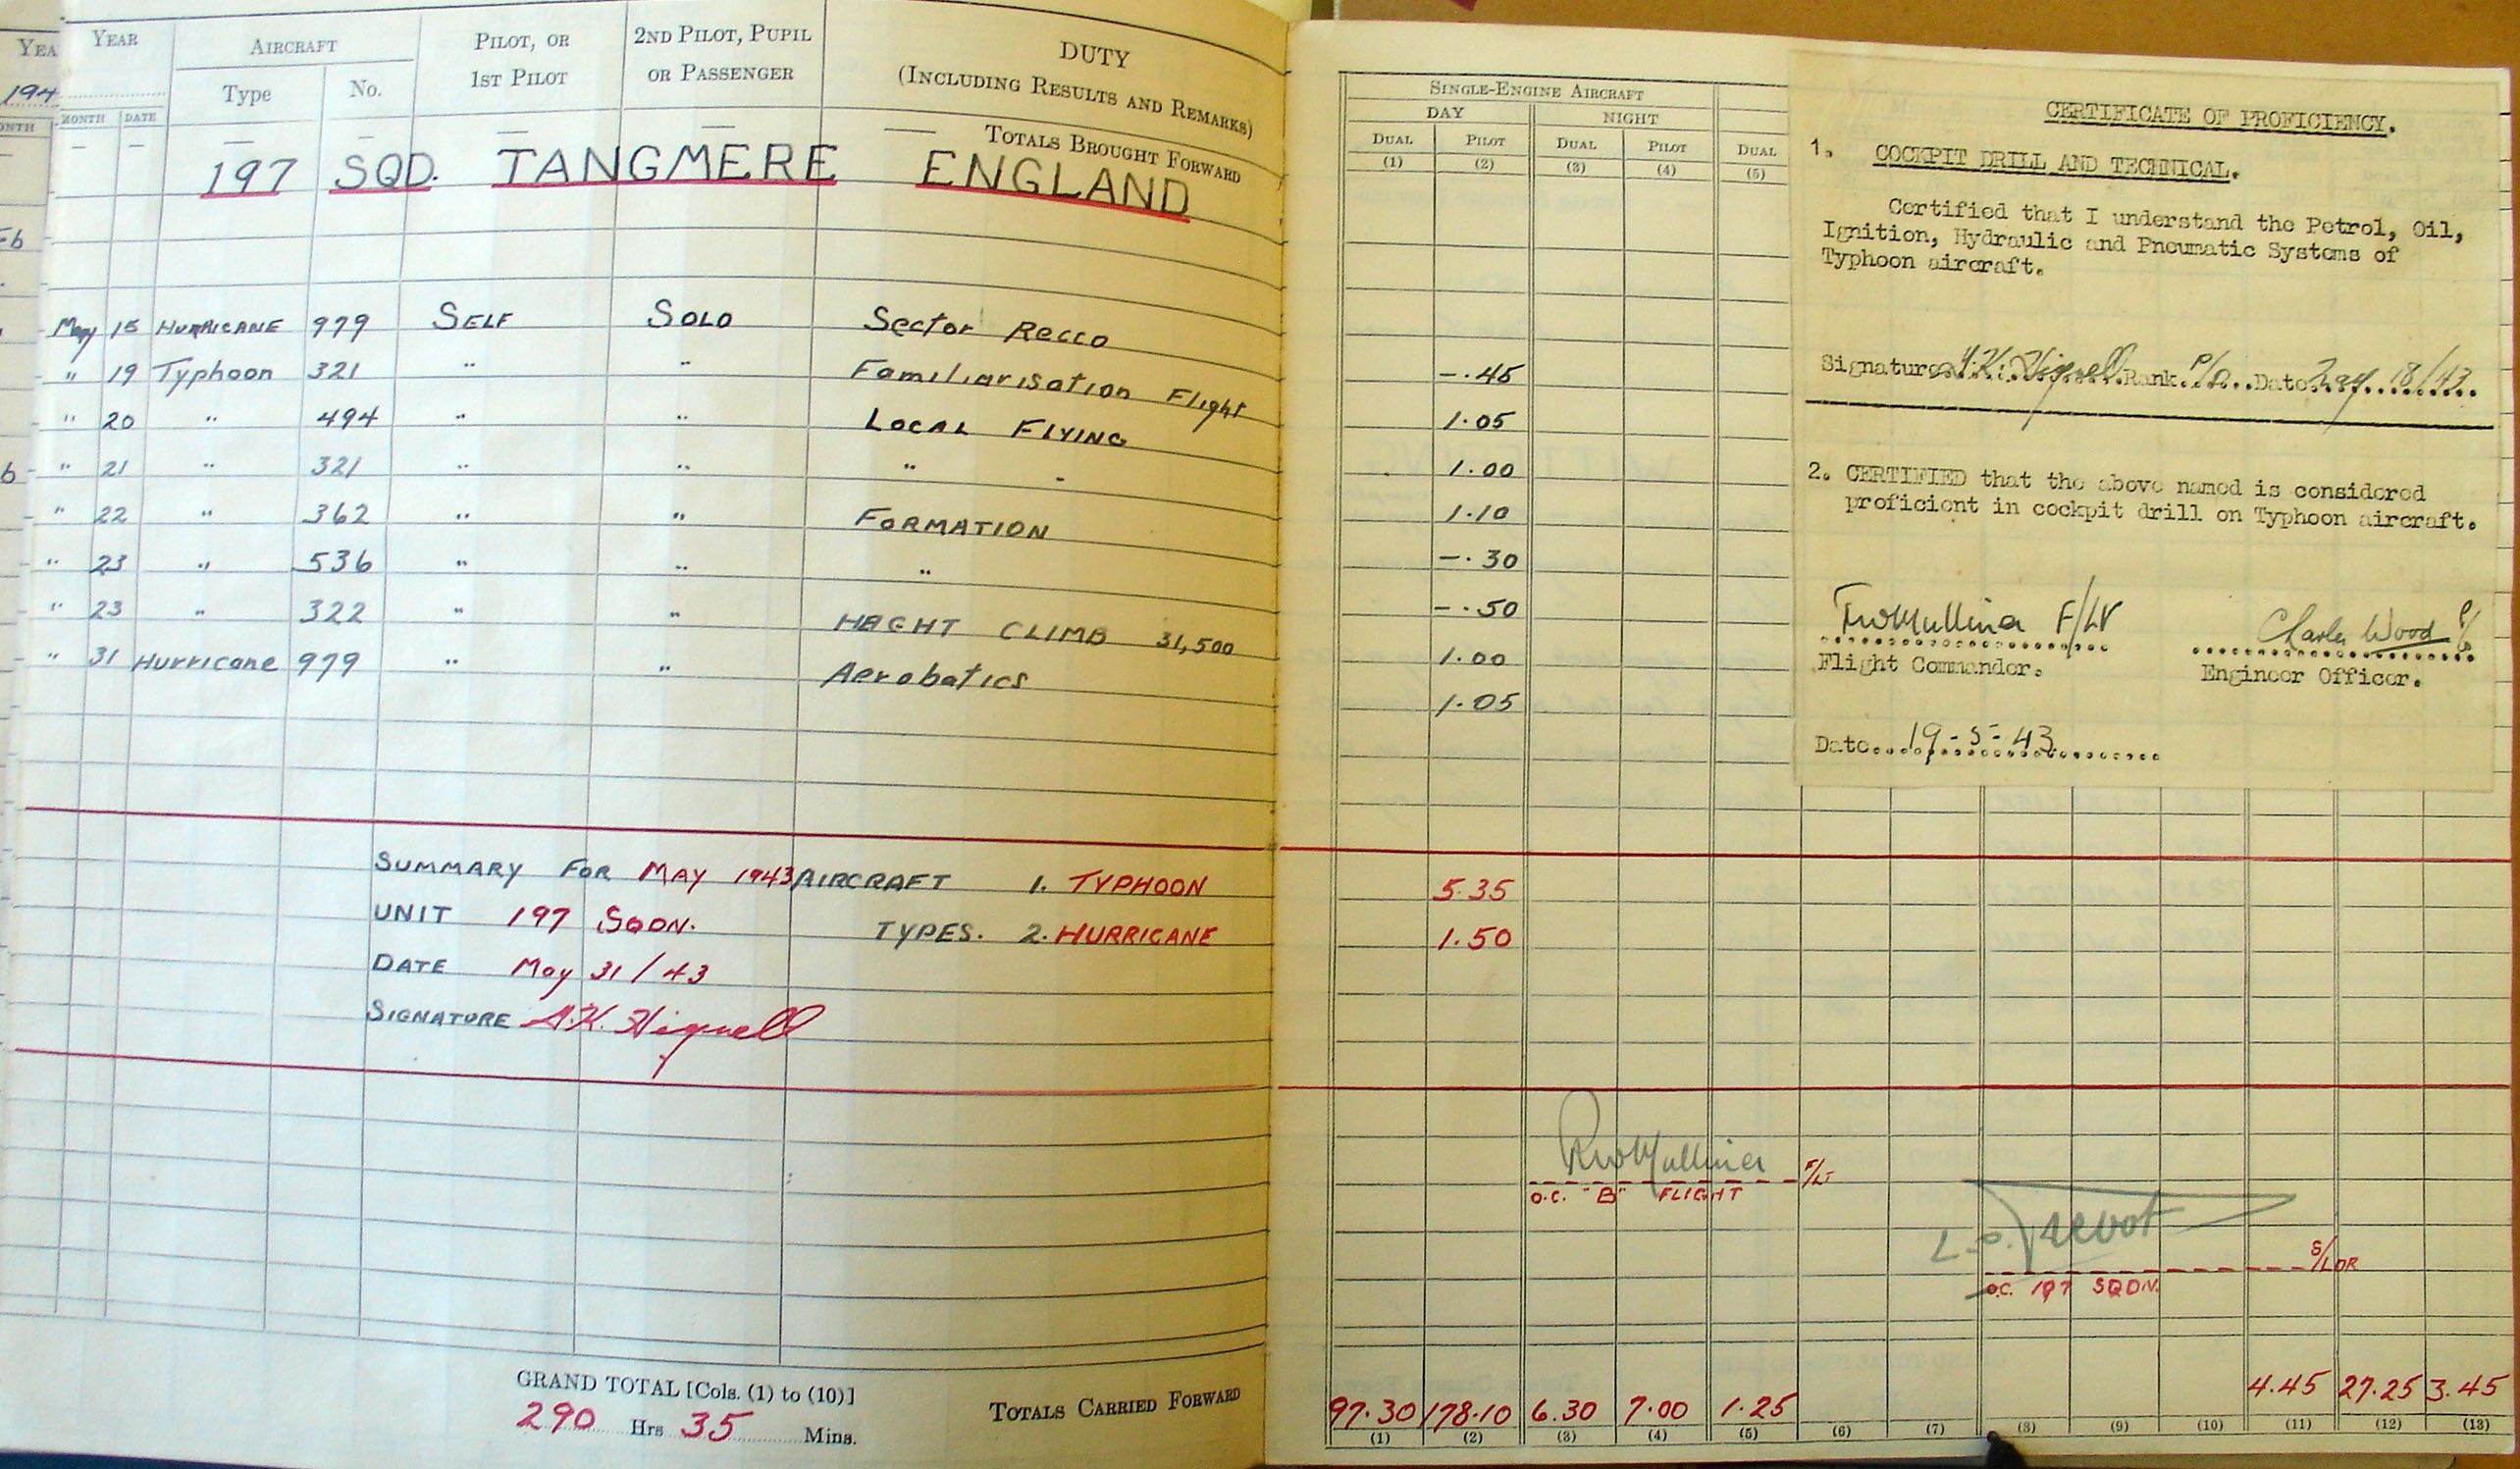 YEAR
194
MONTH
YEAR
MONTH DATE
AIRCRAFT
Type No.
PILOT, OR
1ST PILOT
2ND PILOT, PUPIL
OR PASSENGER
DUTY
(INCLUDING RESULTS AND REMARKS)
— — — — — — TOTALS BROUGHT FORWARD
197 SQD. TANGMERE ENGLAND
May 15 HURRICANE 979 SELF SOLO Sector Recco —.45
" 19 Typhoon 321 " " Familiarisation Flight 1.05
" 20 " 494 " " LOCAL FLYING 1.00
" 21 " 321 " " " 1.10
" 22 " 362 " " FORMATION —.30
" 23 " 536 " " " —.50
" 23 " 322 " " HEIGHT CLIMB 31,500 1.00
" 31 Hurricane 979 " " Aerobatics 1.05
SUMMARY FOR MAY 1943 AIRCRAFT 1. TYPHOON 5.35
UNIT 197 SQDN. TYPES. 2. HURRICANE 1.50
DATE May 31/43
SIGNATURE A.K. Hignell
GRAND TOTAL [Cols. (1) to (10)]
290 Hrs 35 Mins.
TOTALS CARRIED FORWARD
SINGLE-ENGINE AIRCRAFT
DAY NIGHT
DUAL PILOT DUAL PILOT DUAL
(1) (2) (3) (4) (5)
CERTIFICATE OF PROFICIENCY.
1. COCKPIT DRILL AND TECHNICAL.
Certified that I understand the Petrol, Oil,
Ignition, Hydraulic and Pneumatic Systems of
Typhoon aircraft.
Signature A.K. Hignell Rank P/O Date May 18/43
2. CERTIFIED that the above named is considered
proficient in cockpit drill on Typhoon aircraft.
Mulliner F/Lt Charles Wood
Flight Commander. Engineer Officer.
Date 19-5-43
Mulliner F/LT
O.C. "B" FLIGHT
L.O. Prevot S/LDR
O.C. 197 SQDN.
97.30 178.10 6.30 7.00 1.25 4.45 27.25 3.45
(1) (2) (3) (4) (5) (6) (7) (8) (9) (10) (11) (12) (13)